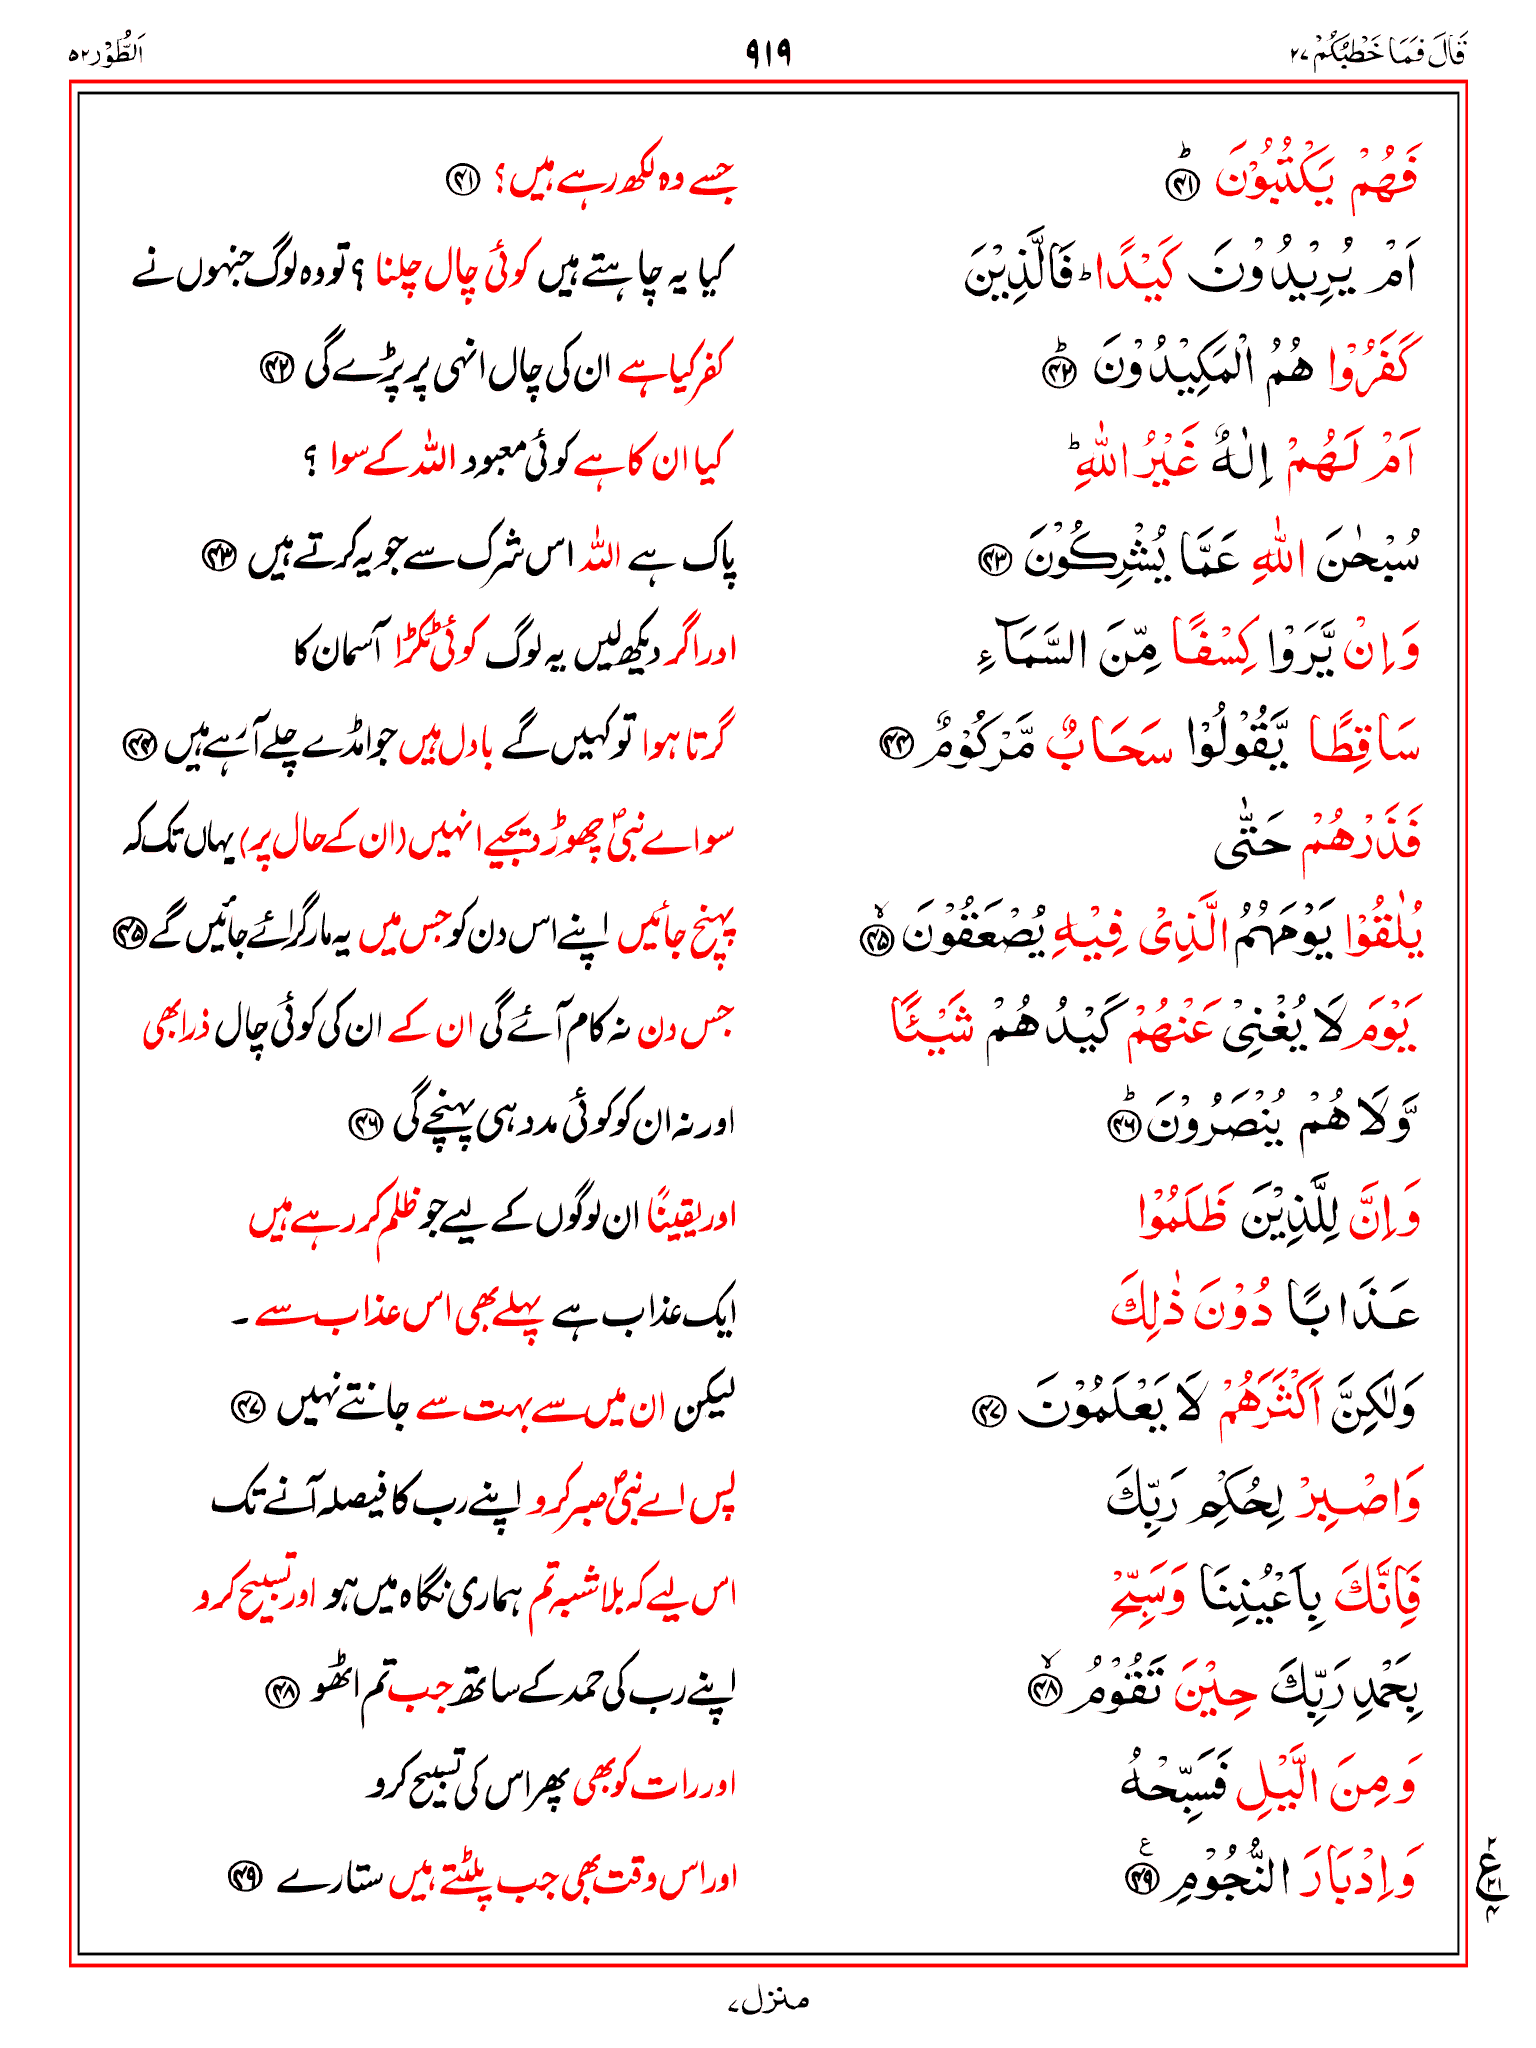 قَالَ فَمَا خَطْبُكُمْ ۲۷ ۹۱۹ اَلطُّوْر ۵۲
فَهُمْ يَكْتُبُوْنَ ؕ ﴿۴۱﴾ جسے وہ لکھ رہے ہیں؟ ﴿۴۱﴾
اَمْ يُرِيْدُوْنَ كَيْدًا ؕ فَالَّذِيْنَ کیا یہ چاہتے ہیں کوئی چال چلنا ؟ تو وہ لوگ جنہوں نے
كَفَرُوْا هُمُ الْمَكِيْدُوْنَ ؕ ﴿۴۲﴾ کفر کیا ہے ان کی چال انہی پر پڑے گی ﴿۴۲﴾
اَمْ لَهُمْ اِلٰهٌ غَيْرُ اللّٰهِ ؕ کیا ان کا ہے کوئی معبود اللہ کے سوا ؟
سُبْحٰنَ اللّٰهِ عَمَّا يُشْرِكُوْنَ ﴿۴۳﴾ پاک ہے اللہ اس شرک سے جو یہ کرتے ہیں ﴿۴۳﴾
وَاِنْ يَّرَوْا كِسْفًا مِّنَ السَّمَآءِ اور اگر دیکھ لیں یہ لوگ کوئی ٹکڑا آسمان کا
سَاقِطًا يَّقُوْلُوْا سَحَابٌ مَّرْكُوْمٌ ﴿۴۴﴾ گرتا ہوا تو کہیں گے بادل ہیں جو امڈے چلے آرہے ہیں ﴿۴۴﴾
فَذَرْهُمْ حَتّٰى سو اے نبیؐ چھوڑ دیجیے انہیں (ان کے حال پر) یہاں تک کہ
يُلٰقُوْا يَوْمَهُمُ الَّذِىْ فِيْهِ يُصْعَقُوْنَ ۙ ﴿۴۵﴾ پہنچ جائیں اپنے اس دن کو جس میں یہ مار گرائے جائیں گے ﴿۴۵﴾
يَوْمَ لَا يُغْنِىْ عَنْهُمْ كَيْدُهُمْ شَيْـًٔا جس دن نہ کام آئے گی ان کے ان کی کوئی چال ذرا بھی
وَّلَا هُمْ يُنْصَرُوْنَ ؕ ﴿۴۶﴾ اور نہ ان کو کوئی مدد ہی پہنچے گی ﴿۴۶﴾
وَاِنَّ لِلَّذِيْنَ ظَلَمُوْا اور یقینًا ان لوگوں کے لیے جو ظلم کر رہے ہیں
عَذَابًا دُوْنَ ذٰلِكَ ایک عذاب ہے پہلے بھی اس عذاب سے ۔
وَلٰكِنَّ اَكْثَرَهُمْ لَا يَعْلَمُوْنَ ﴿۴۷﴾ لیکن ان میں سے بہت سے جانتے نہیں ﴿۴۷﴾
وَاصْبِرْ لِحُكْمِ رَبِّكَ پس اے نبیؐ صبر کرو اپنے رب کا فیصلہ آنے تک
فَاِنَّكَ بِاَعْيُنِنَا وَسَبِّحْ اس لیے کہ بلا شبہ تم ہماری نگاہ میں ہو اور تسبیح کرو
بِحَمْدِ رَبِّكَ حِيْنَ تَقُوْمُ ۙ ﴿۴۸﴾ اپنے رب کی حمد کے ساتھ جب تم اٹھو ﴿۴۸﴾
وَمِنَ الَّيْلِ فَسَبِّحْهُ اور رات کو بھی پھر اس کی تسبیح کرو
وَاِدْبَارَ النُّجُوْمِ ﴿۴۹﴾ ع اور اس وقت بھی جب پلٹتے ہیں ستارے ﴿۴۹﴾
۲ ع ۲۱ ۴
منزل ۷